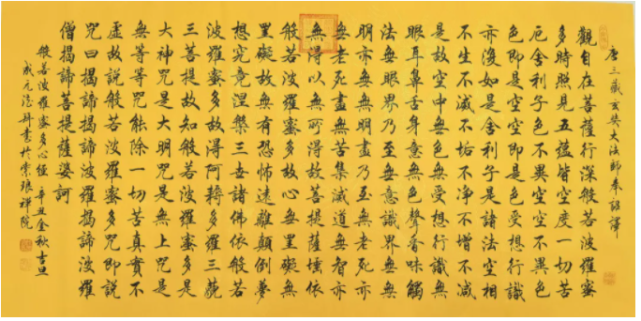 唐三藏玄奘大法師奉詔譯
觀自在菩薩行深般若波羅蜜
多時照見五蘊皆空度一切苦
厄舍利子色不異空空不異色
色即是空空即是色受想行識
亦復如是舍利子是諸法空相
不生不滅不垢不淨不增不減
是故空中無色無受想行識無
眼耳鼻舌身意無色聲香味觸
法無眼界乃至無意識界無無
明亦無無明盡乃至無老死亦
無老死盡無苦集滅道無智亦
無得以無所得故菩提薩埵依
般若波羅蜜多故心無罣礙無
罣礙故無有恐怖遠離顛倒夢
想究竟涅槃三世諸佛依般若
波羅蜜多故得阿耨多羅三藐
三菩提故知般若波羅蜜多是
大神咒是大明咒是無上咒是
無等等咒能除一切苦真實不
虛故說般若波羅蜜多咒即說
咒曰揭諦揭諦波羅揭諦波羅
僧揭諦菩提薩婆訶
般若波羅蜜多心經 辛丑金秋吉旦
書於 禪院